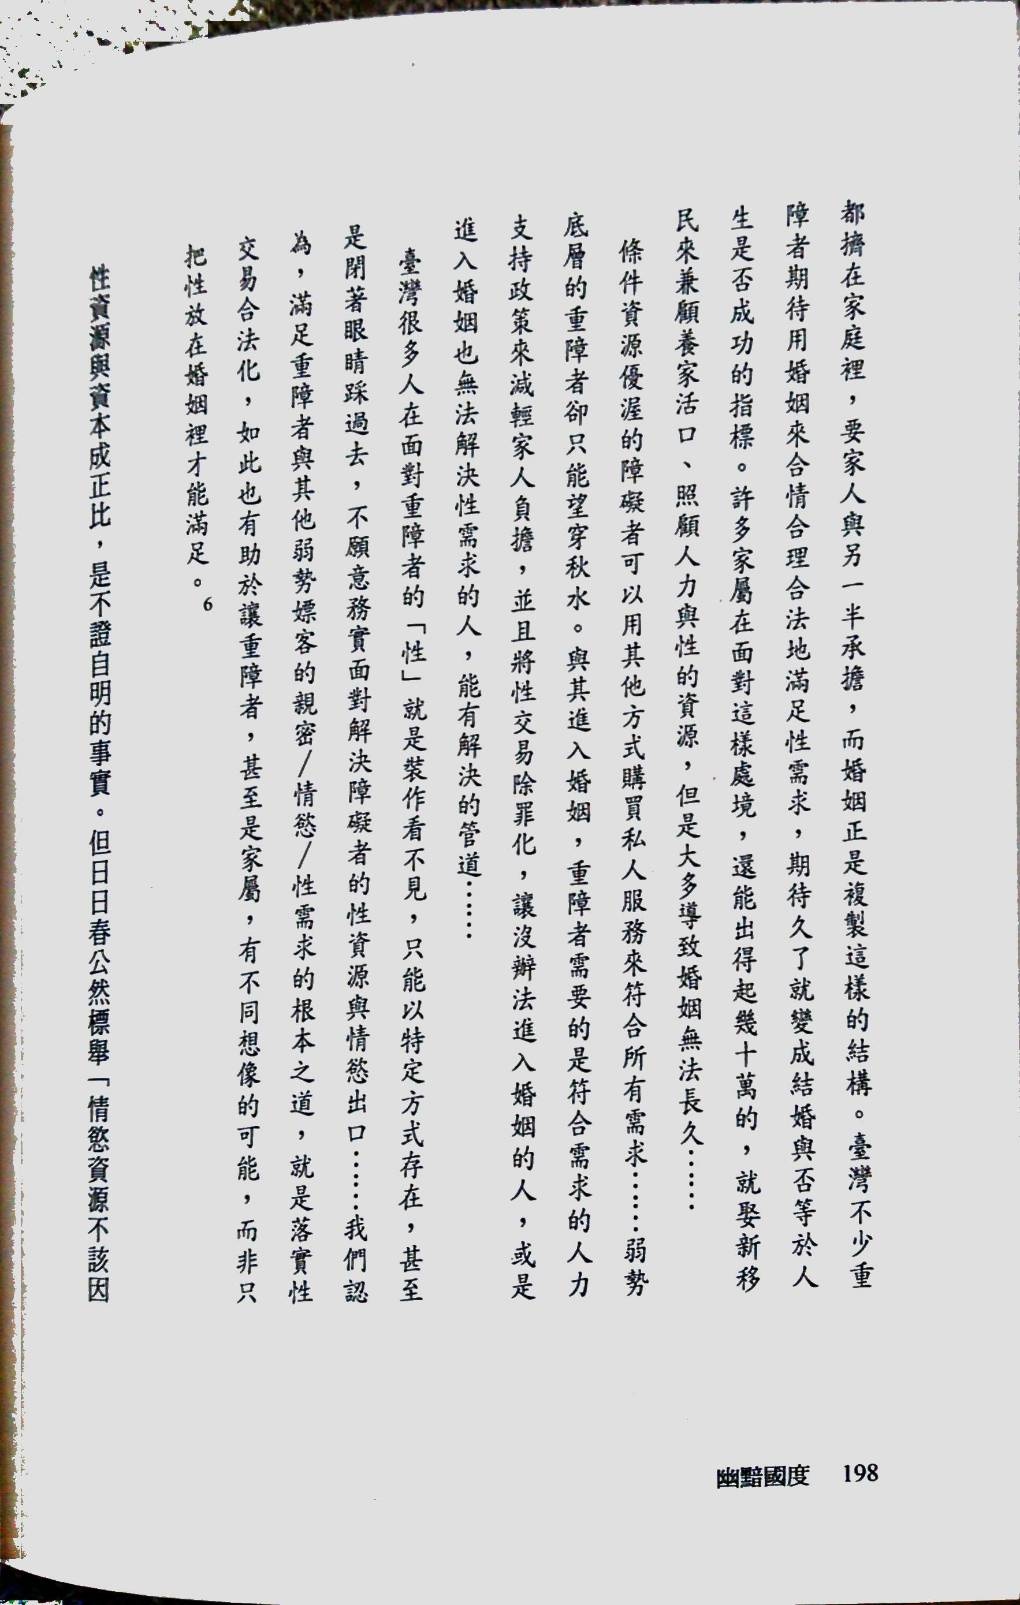 都擠在家庭裡，要家人與另一半承擔，而婚姻正是複製這樣的結構。臺灣不少重
障者期待用婚姻來合情合理合法地滿足性需求，期待久了就變成結婚與否等於人
生是否成功的指標。許多家屬在面對這樣處境，還能出得起幾十萬的，就娶新移
民來兼顧養家活口、照顧人力與性的資源，但是大多導致婚姻無法長久⋯⋯
條件資源優渥的障礙者可以用其他方式購買私人服務來符合所有需求⋯⋯弱勢
底層的重障者卻只能望穿秋水。與其進入婚姻，重障者需要的是符合需求的人力
支持政策來減輕家人負擔，並且將性交易除罪化，讓沒辦法進入婚姻的人，或是
進入婚姻也無法解決性需求的人，能有解決的管道⋯⋯
臺灣很多人在面對重障者的「性」就是裝作看不見，只能以特定方式存在，甚至
是閉著眼睛踩過去，不願意務實面對解決障礙者的性資源與情慾出口⋯⋯我們認
為，滿足重障者與其他弱勢嫖客的親密/情慾/性需求的根本之道，就是落實性
交易合法化，如此也有助於讓重障者，甚至是家屬，有不同想像的可能，而非只
把性放在婚姻裡才能滿足。6
性資源與資本成正比，是不證自明的事實。但日日春公然標舉「情慾資源不該因
幽黯國度 198